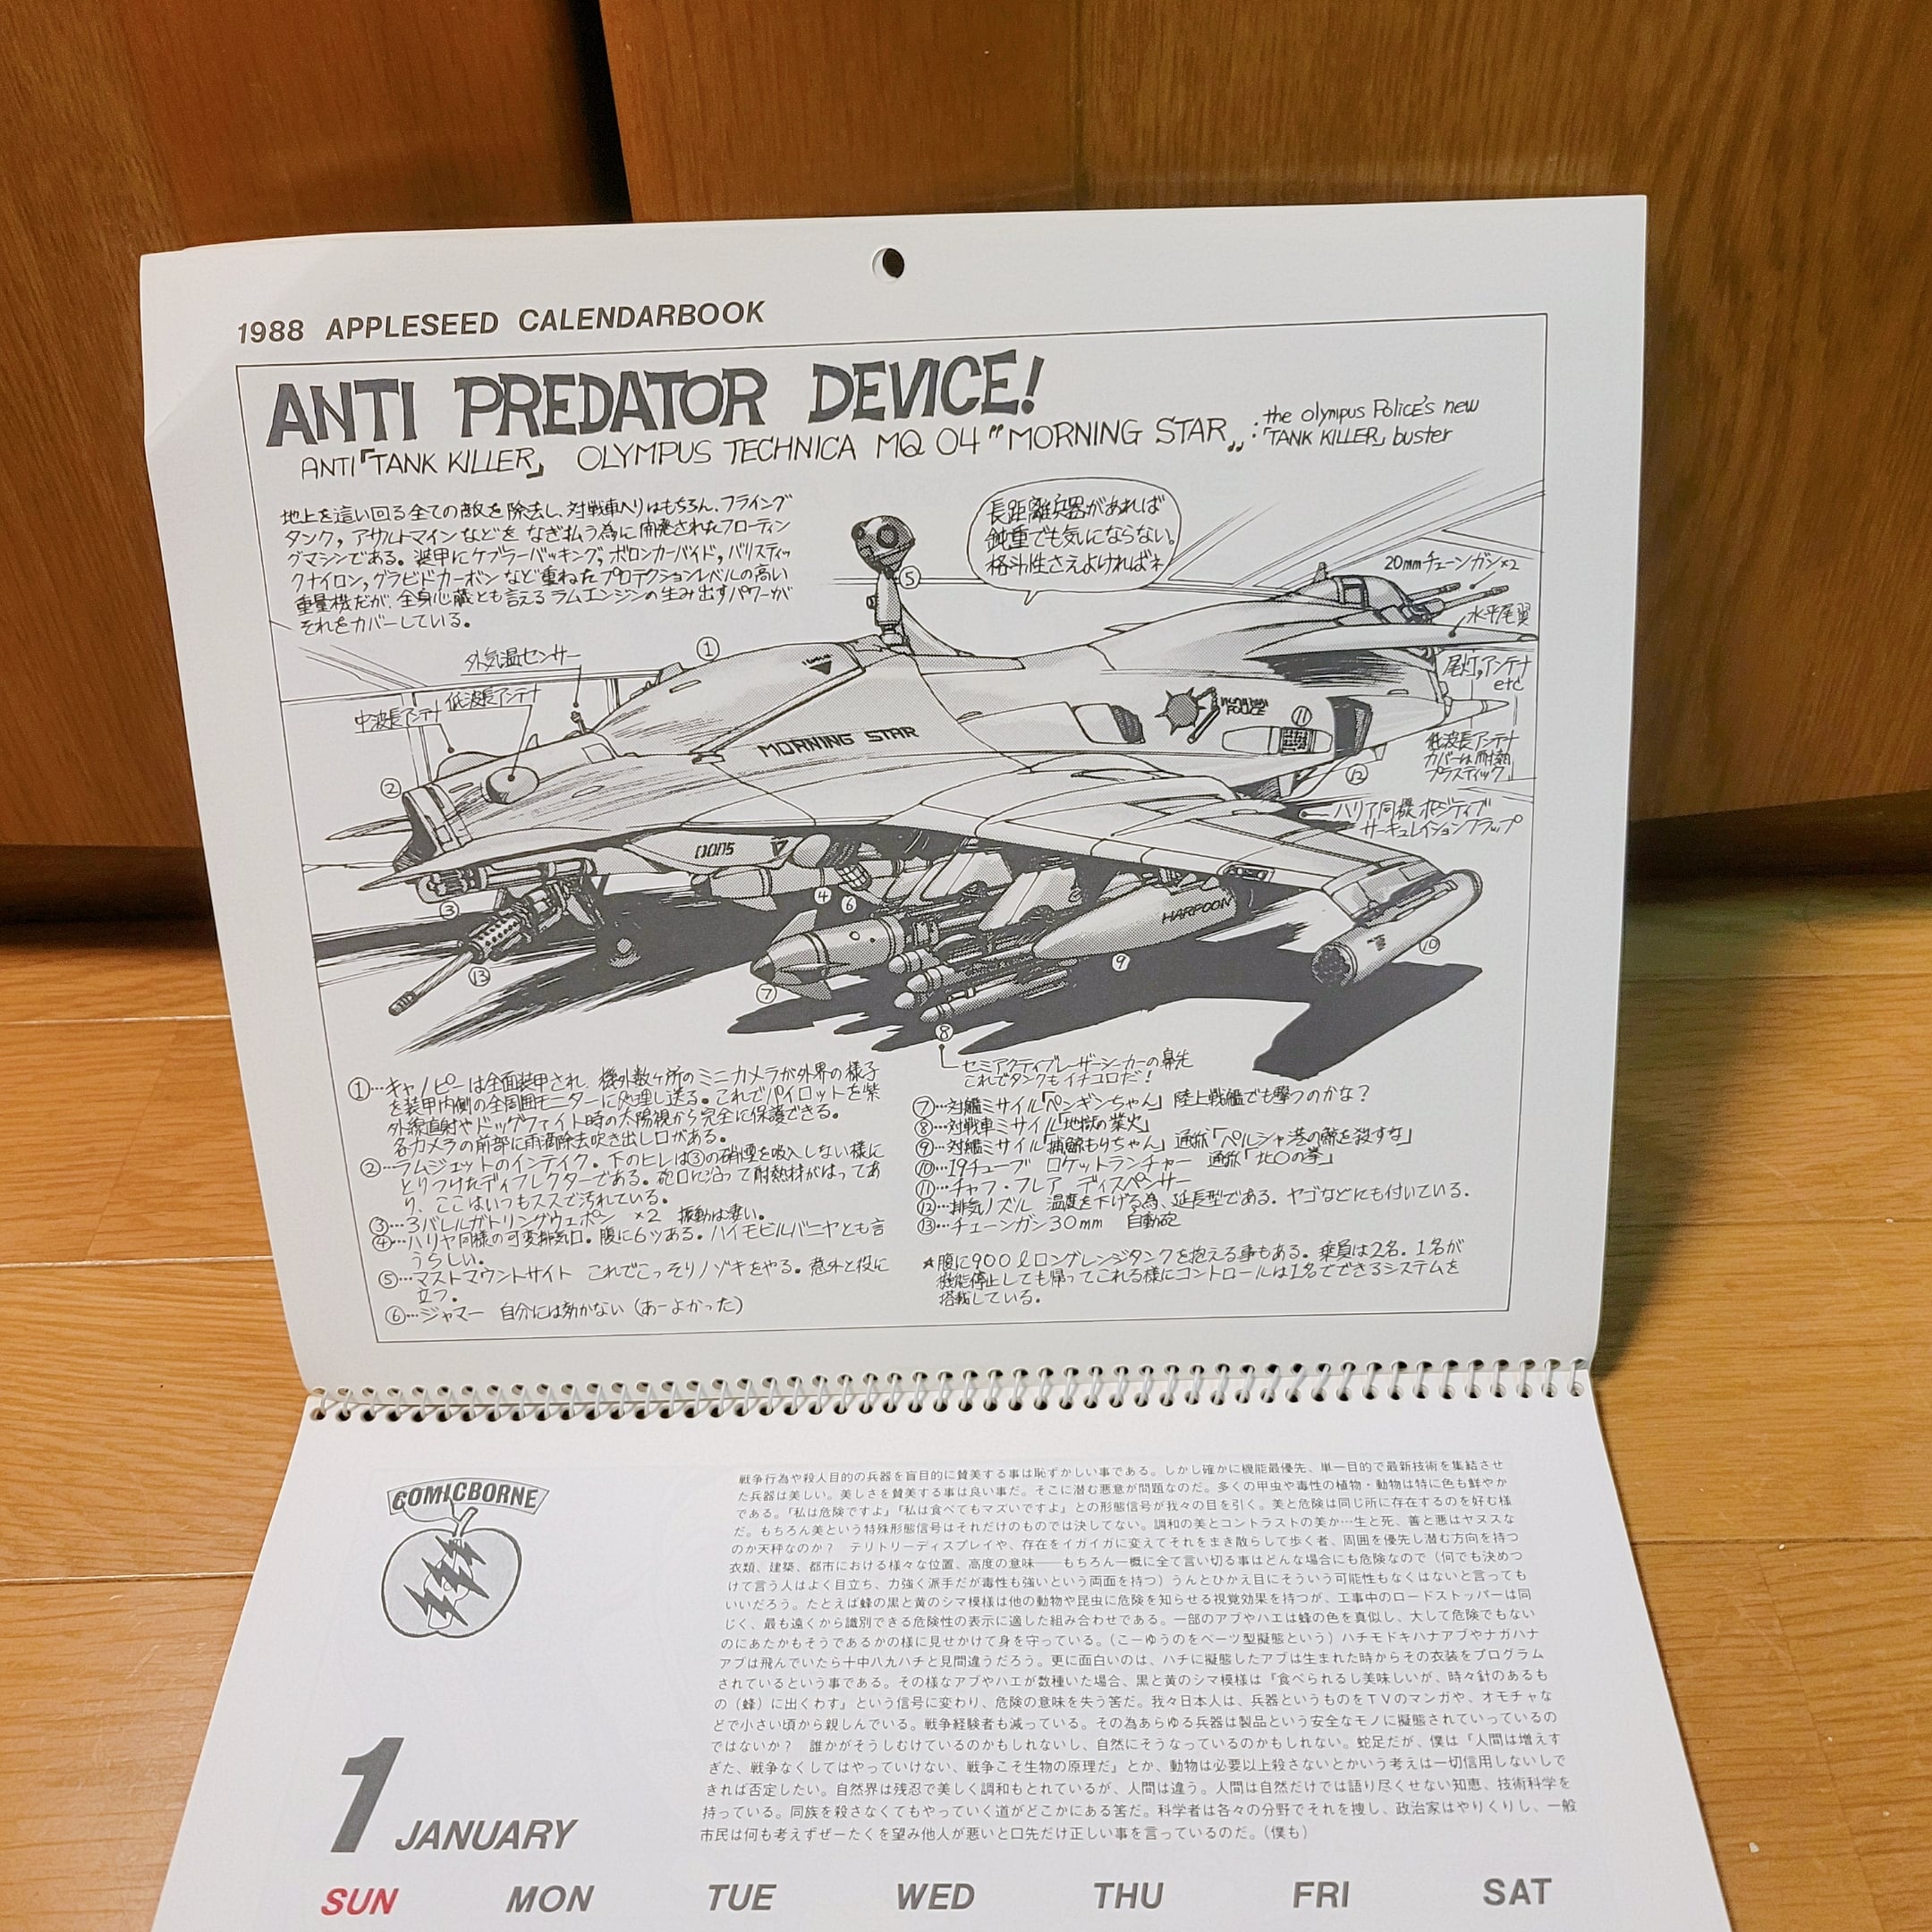 1988 APPLESEED CALENDARBOOK
ANTI PREDATOR DEVICE!
ANTI「TANK KILLER」 OLYMPUS TECHNICA MQ 04 "MORNING STAR„ : the olympus Police's new
「TANK KILLER」 buster
地上を這い回る全ての敵を除去し、対戦車ヘリはもちろん、フライング
タンク, アサルトマインなどを なぎ払う為に開発されたフローティン
グマシンである。装甲にケブラーバッキング, ボロンカーバイド, バリスティッ
クナイロン, グラビドカーボンなど重ねたプロテクションレベルの高い
重量機だが、全身心臓とも言えるラムエンジンの生み出すパワーが
それをカバーしている。
長距離兵器があれば
鈍重でも気にならない。
格斗性さえよければネ
⑤
20mmチェーンガン×2
水平尾翼
尾灯,アンテナ
etc
外気温センサー
低波長アンテナ
中波長アンテナ
①
②
MORNING STAR
POLICE
⑪
⑫
低波長アンテナ
カバーは耐熱
プラスティック
ハリア同様 ポジティブ
サーキュレイションフラップ
③
④
⑥
HARPOON
⑬
⑦
⑨
⑩
⑧
セミアクティブレーザーシーカーの鼻先
これでタンクもイチコロだ！
①…キャノピーは全面装甲され、機外数ヶ所のミニカメラが外界の様子
を装甲内側の全周囲モニターに処理し送る。これでパイロットを紫
外線直射やドッグファイト時の太陽視から完全に保護できる。
各カメラの前部に雨滴除去吹き出し口がある。
②…ラムジェットのインテイク。下のヒレは③の硝煙を吸入しない様に
とりつけたディフレクターである。砲口に沿って耐熱材がはってあ
り、ここはいつもススで汚れている。
③…3バレルガトリングウェポン ×2 振動は凄い。
④…ハリヤ同様の可変排気口。腹に6ツある。ハイモビルバニヤとも言
うらしい。
⑤…マストマウントサイト これでこっそりノゾキをやる。意外と役に
立つ。
⑥…ジャマー 自分には効かない（あーよかった）
⑦…対艦ミサイル「ペンギンちゃん」 陸上戦艦でも撃つのかな？
⑧…対戦車ミサイル「地獄の業火」
⑨…対艦ミサイル「捕鯨もりちゃん」 通称「ペルシャ港の敵を殺すな」
⑩…19チューブ ロケットランチャー 通称「北〇の拳」
⑪…チャフ・フレア ディスペンサー
⑫…排気ノズル 温度を下げる為、延長型である。ヤゴなどにも付いている。
⑬…チェーンガン30mm 自動砲
★腹に900ℓロングレンジタンクを抱える事もある。乗員は2名. 1名が
機能停止しても帰ってこれる様にコントロールは1名でできるシステムを
搭載している。
COMICBORNE
戦争行為や殺人目的の兵器を盲目的に賛美する事は恥ずかしい事である。しかし確かに機能最優先、単一目的で最新技術を集結させ
た兵器は美しい。美しさを賛美する事は良い事だ。そこに潜む悪意が問題なのだ。多くの甲虫や毒性の植物・動物は特に色も鮮やか
である。「私は危険ですよ」「私は食べてもマズいですよ」との形態信号が我々の目を引く。美と危険は同じ所に存在するのを好む様
だ。もちろん美という特殊形態信号はそれだけのものでは決してない。調和の美とコントラストの美か…生と死、善と悪はヤヌスな
のか天秤なのか？ テリトリーディスプレイや、存在をイガイガに変えてそれをまき散らして歩く者、周囲を優先し潜む方向を持つ
衣類、建築、都市における様々な位置、高度の意味――もちろん一概に全て言い切る事はどんな場合にも危険なので（何でも決めつ
けて言う人はよく目立ち、力強く派手だが毒性も強いという両面を持つ）うんとひかえ目にそういう可能性もなくはないと言っても
いいだろう。たとえば蜂の黒と黄のシマ模様は他の動物や昆虫に危険を知らせる視覚効果を持つが、工事中のロードストッパーは同
じく、最も遠くから識別できる危険性の表示に適した組み合わせである。一部のアブやハエは蜂の色を真似し、大して危険でもない
のにあたかもそうであるかの様に見せかけて身を守っている。（こーゆうのをベーツ型擬態という）ハチモドキハナアブやナガハナ
アブは飛んでいたら十中八九ハチと見間違うだろう。更に面白いのは、ハチに擬態したアブは生まれた時からその衣装をプログラム
されているという事である。その様なアブやハエが数種いた場合、黒と黄のシマ模様は『食べられるし美味しいが、時々針のあるも
の（蜂）に出くわす』という信号に変わり、危険の意味を失う筈だ。我々日本人は、兵器というものをＴＶのマンガや、オモチャな
どで小さい頃から親しんでいる。戦争経験者も減っている。その為あらゆる兵器は製品という安全なモノに擬態されていっているの
ではないか？ 誰かがそうしむけているのかもしれないし、自然にそうなっているのかもしれない。蛇足だが、僕は『人間は増えす
ぎた、戦争なくしてはやっていけない、戦争こそ生物の原理だ』とか、動物は必要以上殺さないとかいう考えは一切信用しないしで
きれば否定したい。自然界は残忍で美しく調和もとれているが、人間は違う。人間は自然だけでは語り尽くせない知恵、技術科学を
持っている。同族を殺さなくてもやっていく道がどこかにある筈だ。科学者は各々の分野でそれを捜し、政治家はやりくりし、一般
市民は何も考えずぜーたくを望み他人が悪いと口先だけ正しい事を言っているのだ。（僕も）
1 JANUARY
SUN MON TUE WED THU FRI SAT